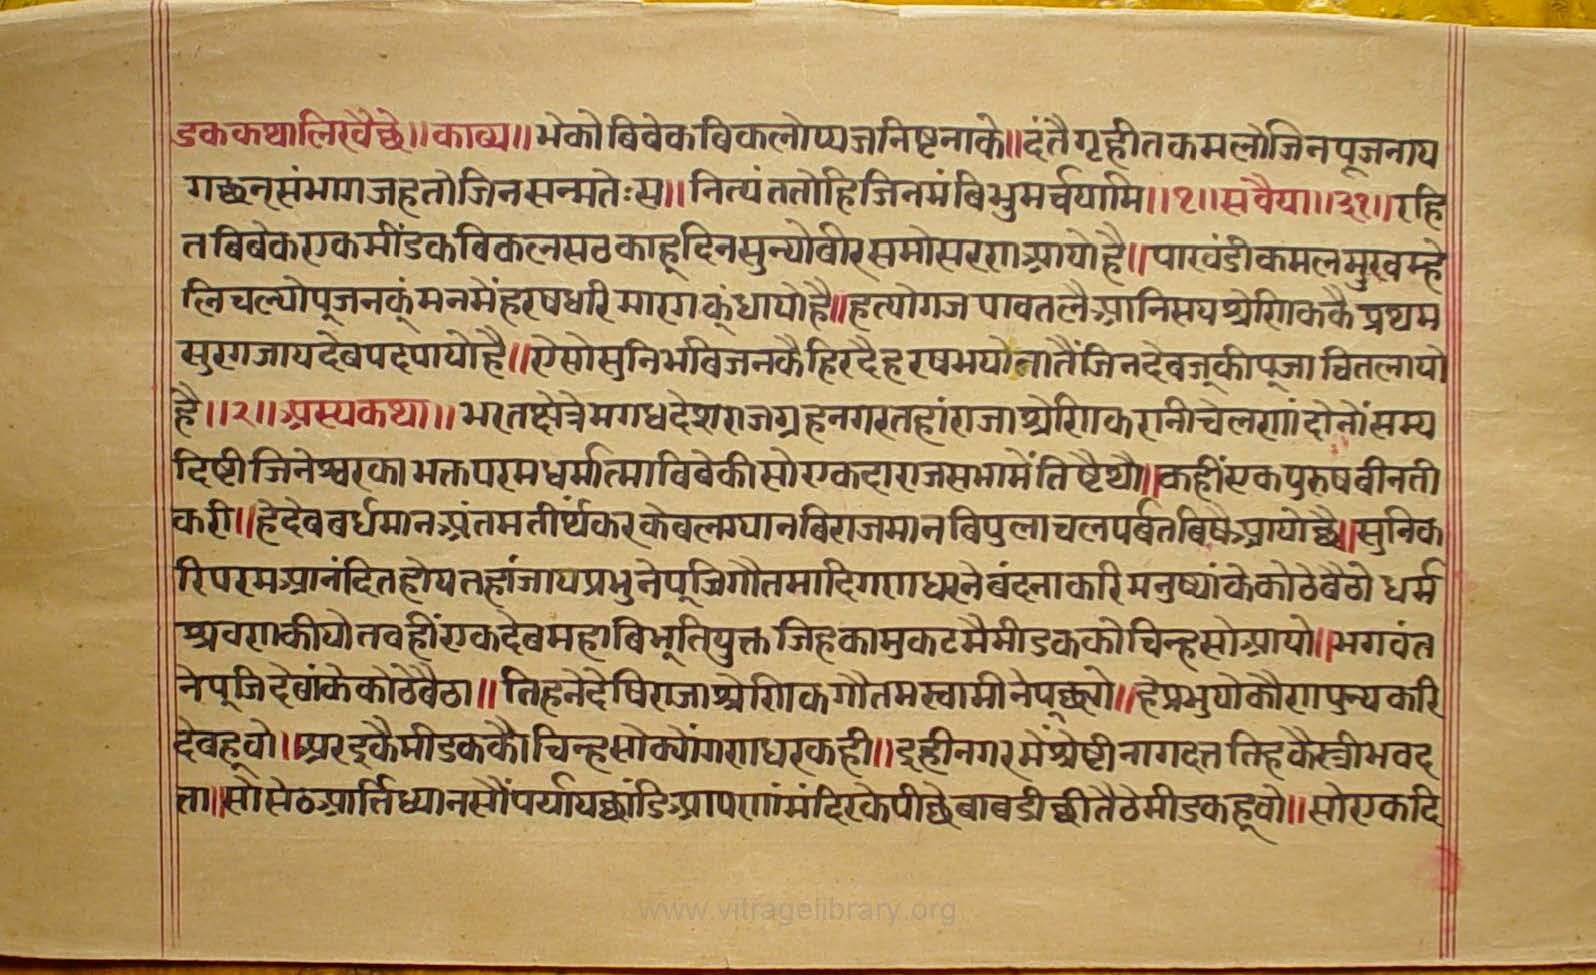 डक कथा लिखै छै॥ काव्य॥ भेको बिबेक बिकलोप्यजनिष्टनाके॥ दंतै गृहीत कमलो जिन पूजनाय
गछन् संभाग जहतो जिन सन्मतेः स॥ नित्यं ततो हि जिनमं बिभुमर्चयामि॥१॥ सवैया॥३१॥ रहि
त बिबेक एक मींडक बिकल सठ काहू दिन सुन्यो बीर समोसरण आयो है॥ पाखंडी कमल मुख म्हे
लि चल्यो पूजन कूं मन में हरष धरि मारग कूं धायो है॥ हत्यो गज पाव तलै आनि सय श्रेणिक कै प्रथम
सुरग जाय देब पद पायो है॥ ऐसो सुनि भबिजन कै हिरदै हरष भयो तातैं जिनदेब जू की पूजा चित लायो
है॥२॥ अस्य कथा॥ भरत क्षेत्रे मगध देश राजग्रह नगर तहां राजा श्रेणिक रानी चेलणां दोनों सम्य
दिष्टी जिनेश्वर का भक्त परम धर्मात्मा बिबेकी सो एकदा राजसभा में तिष्टै थौ॥ कहीं एक पुरुष बीनती
करी॥ हे देब बर्धमान अंतम तीर्थंकर केबल ग्यान बिराजमान बिपुलाचल पर्बत बिषै आयो छै॥ सुनि क
रि परम आनंदित होय तहां जाय प्रभु ने पूजि गौतमादि गणधर ने बंदना करि मनुष्यां के कोठे बैठो धर्म
श्रवण कीयो तवहीं एक देब महा बिभूति युक्त जिह का मुकट मै मीडक को चिन्ह सो आयो॥ भगवंत
ने पूजि देबां के कोठे बैठा॥ तिहने देषि राजा श्रेणिक गौतम स्वामी ने पूछयो॥ हे प्रभु यो कौण पुन्य करि
देब हूवो॥ अर इकै मीडक कौ चिन्ह सो क्यों गणधर कही॥ इही नगर में श्रेष्टी नागदत्त तिह कै स्त्री भवद
त्ता॥ सो सेठ आर्त्ति ध्यान सौं पर्याय छांडि आपणां मंदिर के पीछे बाबडी छी तैठे मीडक हूवो॥ सो एक दि
www.vitragelibrary.org